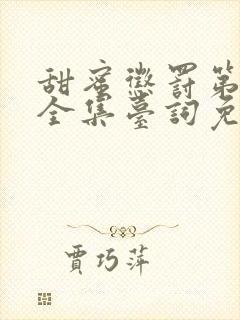 甜蜜懲罰第
全集臺詞免
賈巧萍